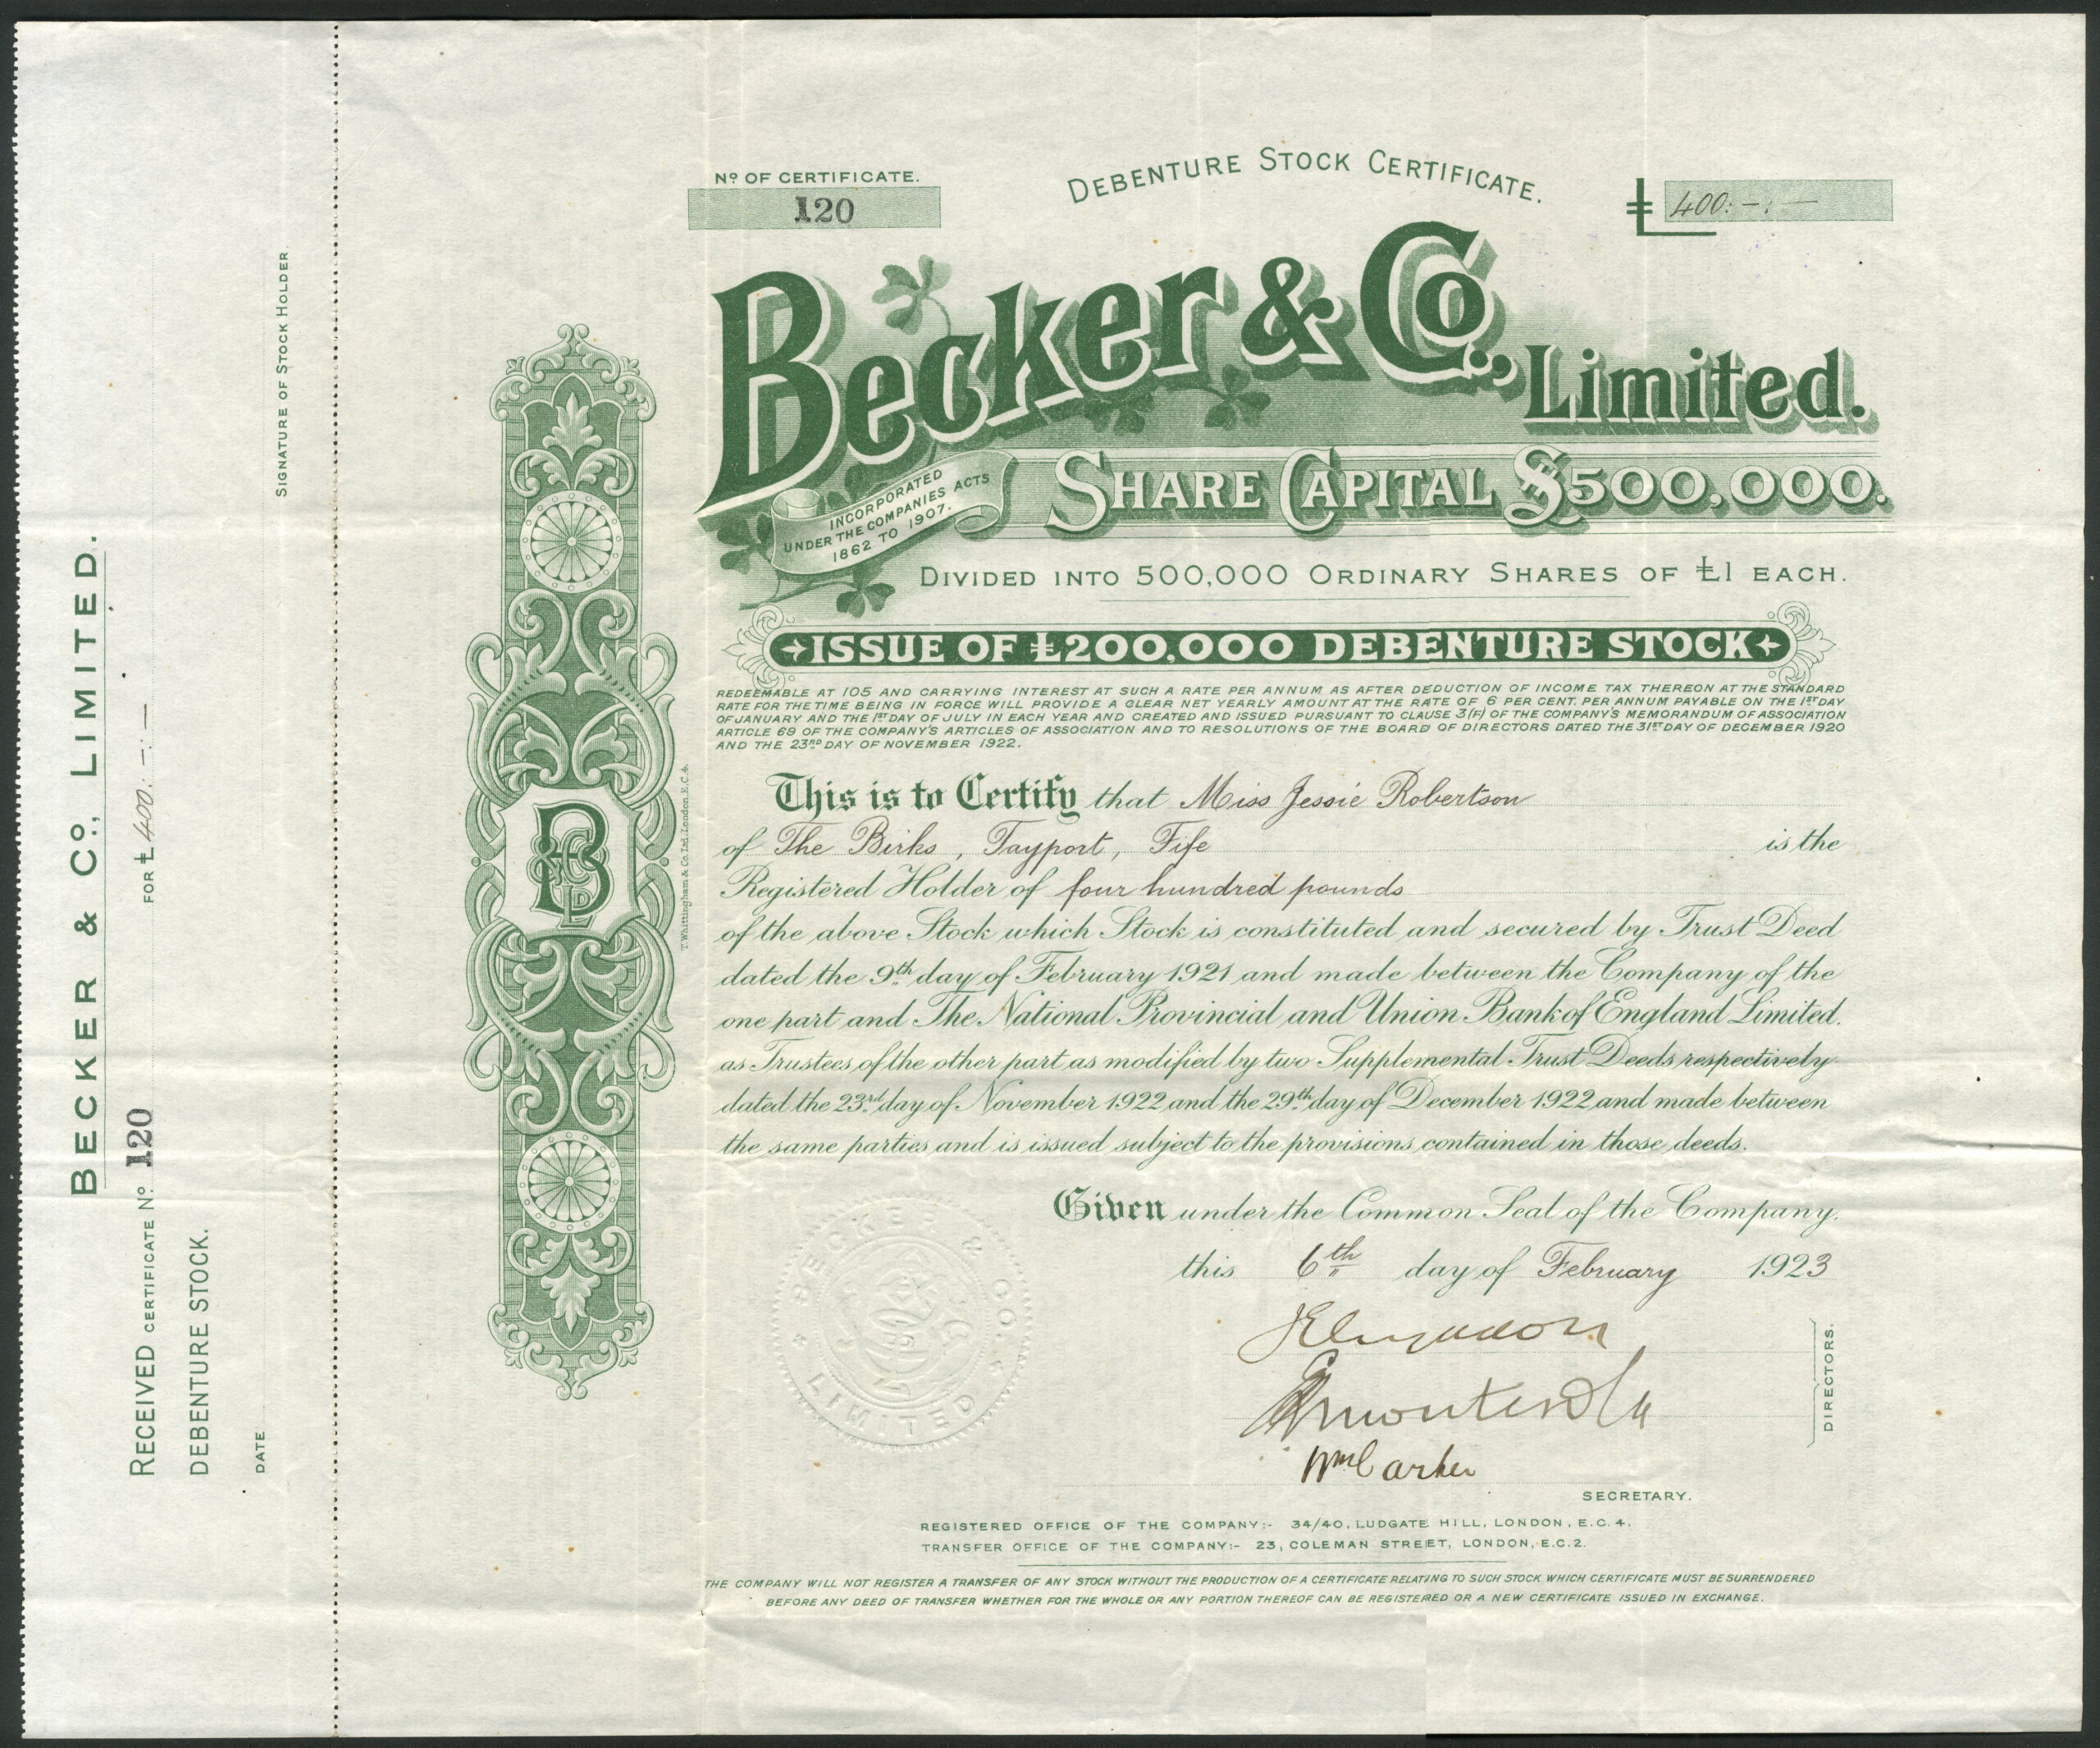 Nº OF CERTIFICATE.
120
DEBENTURE STOCK CERTIFICATE.
£ 400:-:-
Becker & Co., Limited.
INCORPORATED
UNDER THE COMPANIES ACTS
1862 TO 1907.
SHARE CAPITAL £500,000.
DIVIDED INTO 500,000 ORDINARY SHARES OF £1 EACH.
ISSUE OF £200,000 DEBENTURE STOCK
REDEEMABLE AT 105 AND CARRYING INTEREST AT SUCH A RATE PER ANNUM AS AFTER DEDUCTION OF INCOME TAX THEREON AT THE STANDARD
RATE FOR THE TIME BEING IN FORCE WILL PROVIDE A CLEAR NET YEARLY AMOUNT AT THE RATE OF 6 PER CENT. PER ANNUM PAYABLE ON THE 1ST DAY
OF JANUARY AND THE 1ST DAY OF JULY IN EACH YEAR AND CREATED AND ISSUED PURSUANT TO CLAUSE 3(F) OF THE COMPANY'S MEMORANDUM OF ASSOCIATION
ARTICLE 69 OF THE COMPANY'S ARTICLES OF ASSOCIATION AND TO RESOLUTIONS OF THE BOARD OF DIRECTORS DATED THE 31ST DAY OF DECEMBER 1920
AND THE 23RD DAY OF NOVEMBER 1922.
This is to Certify that Miss Jessie Robertson
of The Birks, Tayport, Fife is the
Registered Holder of four hundred pounds
of the above Stock which Stock is constituted and secured by Trust Deed
dated the 9th day of February 1921 and made between the Company of the
one part and The National Provincial and Union Bank of England Limited.
as Trustees of the other part as modified by two Supplemental Trust Deeds respectively
dated the 23rd day of November 1922 and the 29th day of December 1922 and made between
the same parties and is issued subject to the provisions contained in those deeds.
Given under the Common Seal of the Company.
this 6th day of February 1923
DIRECTORS.
Wm Carker
SECRETARY.
REGISTERED OFFICE OF THE COMPANY:- 34/40, LUDGATE HILL, LONDON, E.C.4.
TRANSFER OFFICE OF THE COMPANY:- 23, COLEMAN STREET, LONDON, E.C.2.
THE COMPANY WILL NOT REGISTER A TRANSFER OF ANY STOCK WITHOUT THE PRODUCTION OF A CERTIFICATE RELATING TO SUCH STOCK WHICH CERTIFICATE MUST BE SURRENDERED
BEFORE ANY DEED OF TRANSFER WHETHER FOR THE WHOLE OR ANY PORTION THEREOF CAN BE REGISTERED OR A NEW CERTIFICATE ISSUED IN EXCHANGE.
BECKER & CO. LIMITED
BCoLD
T. Whittingham & Co. Ltd. London. E.C.4.
BECKER & Cº., LIMITED.
RECEIVED CERTIFICATE Nº 120 FOR £ 400:-:-
DEBENTURE STOCK.
DATE
SIGNATURE OF STOCK HOLDER